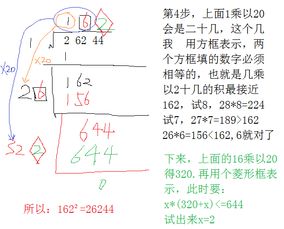 1 6 2
X20
X20
1
2 62 44
1
2 6
1 62
1 56
52 2
6 44
6 44
0
所以：162²=26244
第4步，上面1乘以20
会是二十几，这个几
我 用方框表示，两
个方框填的数字必须
相等的，也就是几乘
以2十几的积最接近
162，试8，28*8=224
试7，27*7=189>162
26*6=156<162,6就对了
下来，上面的16乘以20
得320.再用个菱形框表
示，此时要：
x*(320+x)<=644
试出来x=2